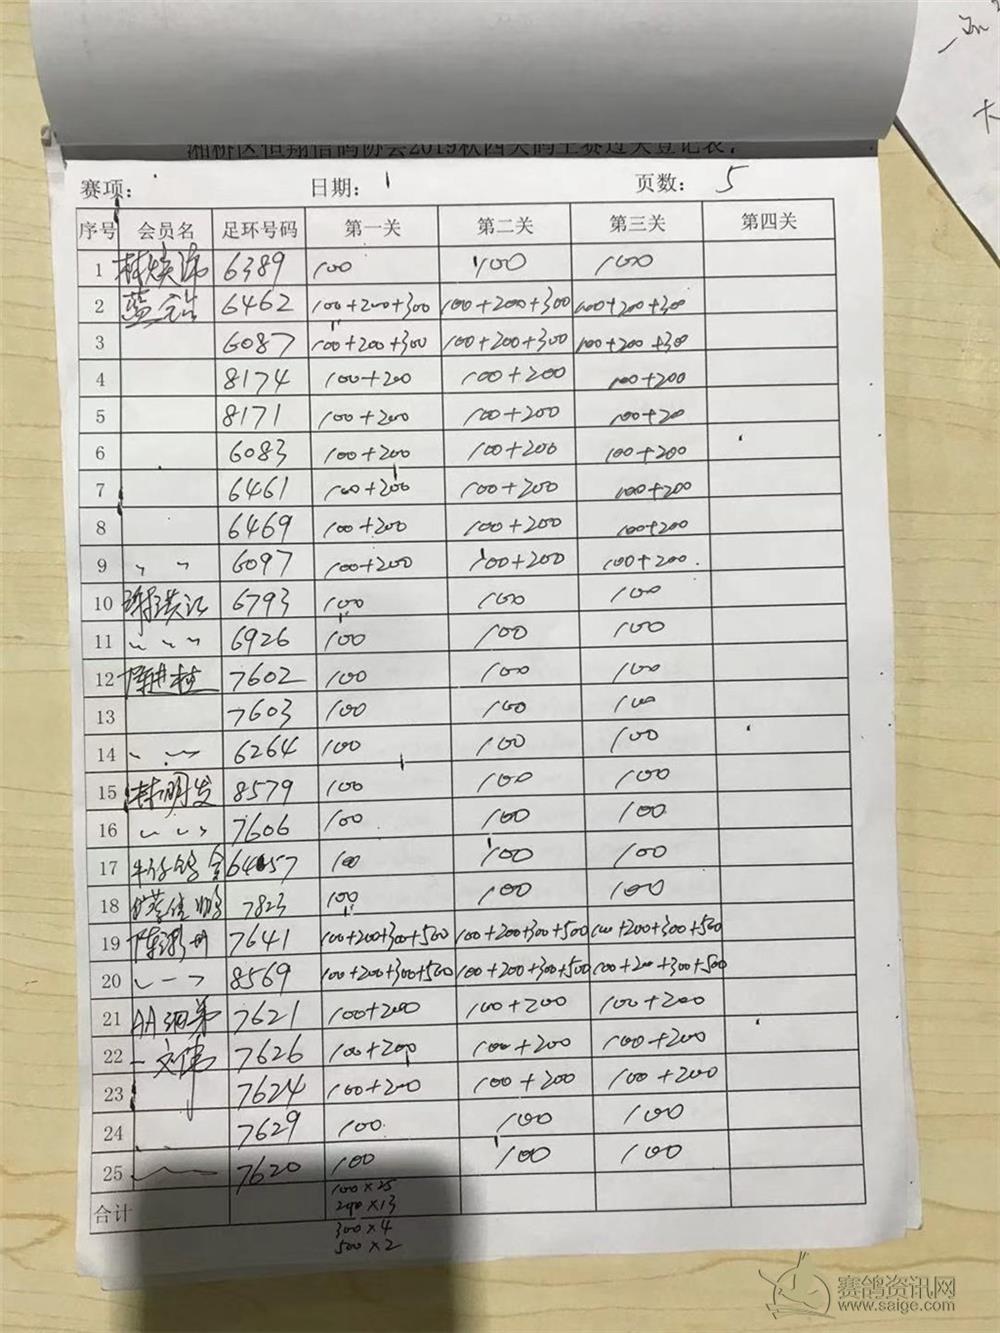 湘桥区恒翔信鸽协会2019秋四关鸽王赛过关登记表
赛项: 日期: 页数: 5
序号 会员名 足环号码 第一关 第二关 第三关 第四关
1 6389 100 100 100
2 蓝 6462 100+200+300 100+200+300 100+200+300
3 6087 100+200+300 100+200+300 100+200+300
4 8174 100+200 100+200 100+200
5 8171 100+200 100+200 100+20
6 6083 100+200 100+200 100+200
7 6461 100+200 100+200 100+200
8 6469 100+200 100+200 100+200
9 〃 〃 6097 100+200 100+200 100+200
10 6793 100 100 100
11 〃 〃 〃 6926 100 100 100
12 陈进 7602 100 100 100
13 7603 100 100 100
14 〃 〃 6264 100 100 100
15 林明发 8579 100 100 100
16 〃 〃 〃 7606 100 100 100
17 牛仔鸽舍 6457 100 100 100
18 蔡佳鹏 7823 100 100 100
19 陈 7641 100+200+300+500 100+200+300+500 100+200+300+500
20 8569 100+200+300+500 100+200+300+500 100+200+300+500
21 AA 兄弟 7621 100+200 100+200 100+200
22 一文伟 7626 100+200 100+200 100+200
23 7624 100+200 100+200 100+200
24 7629 100 100 100
25 7620 100 100 100
合计 100×25
200×13
300×4
500×2
赛鸽资讯网
www.saige.com